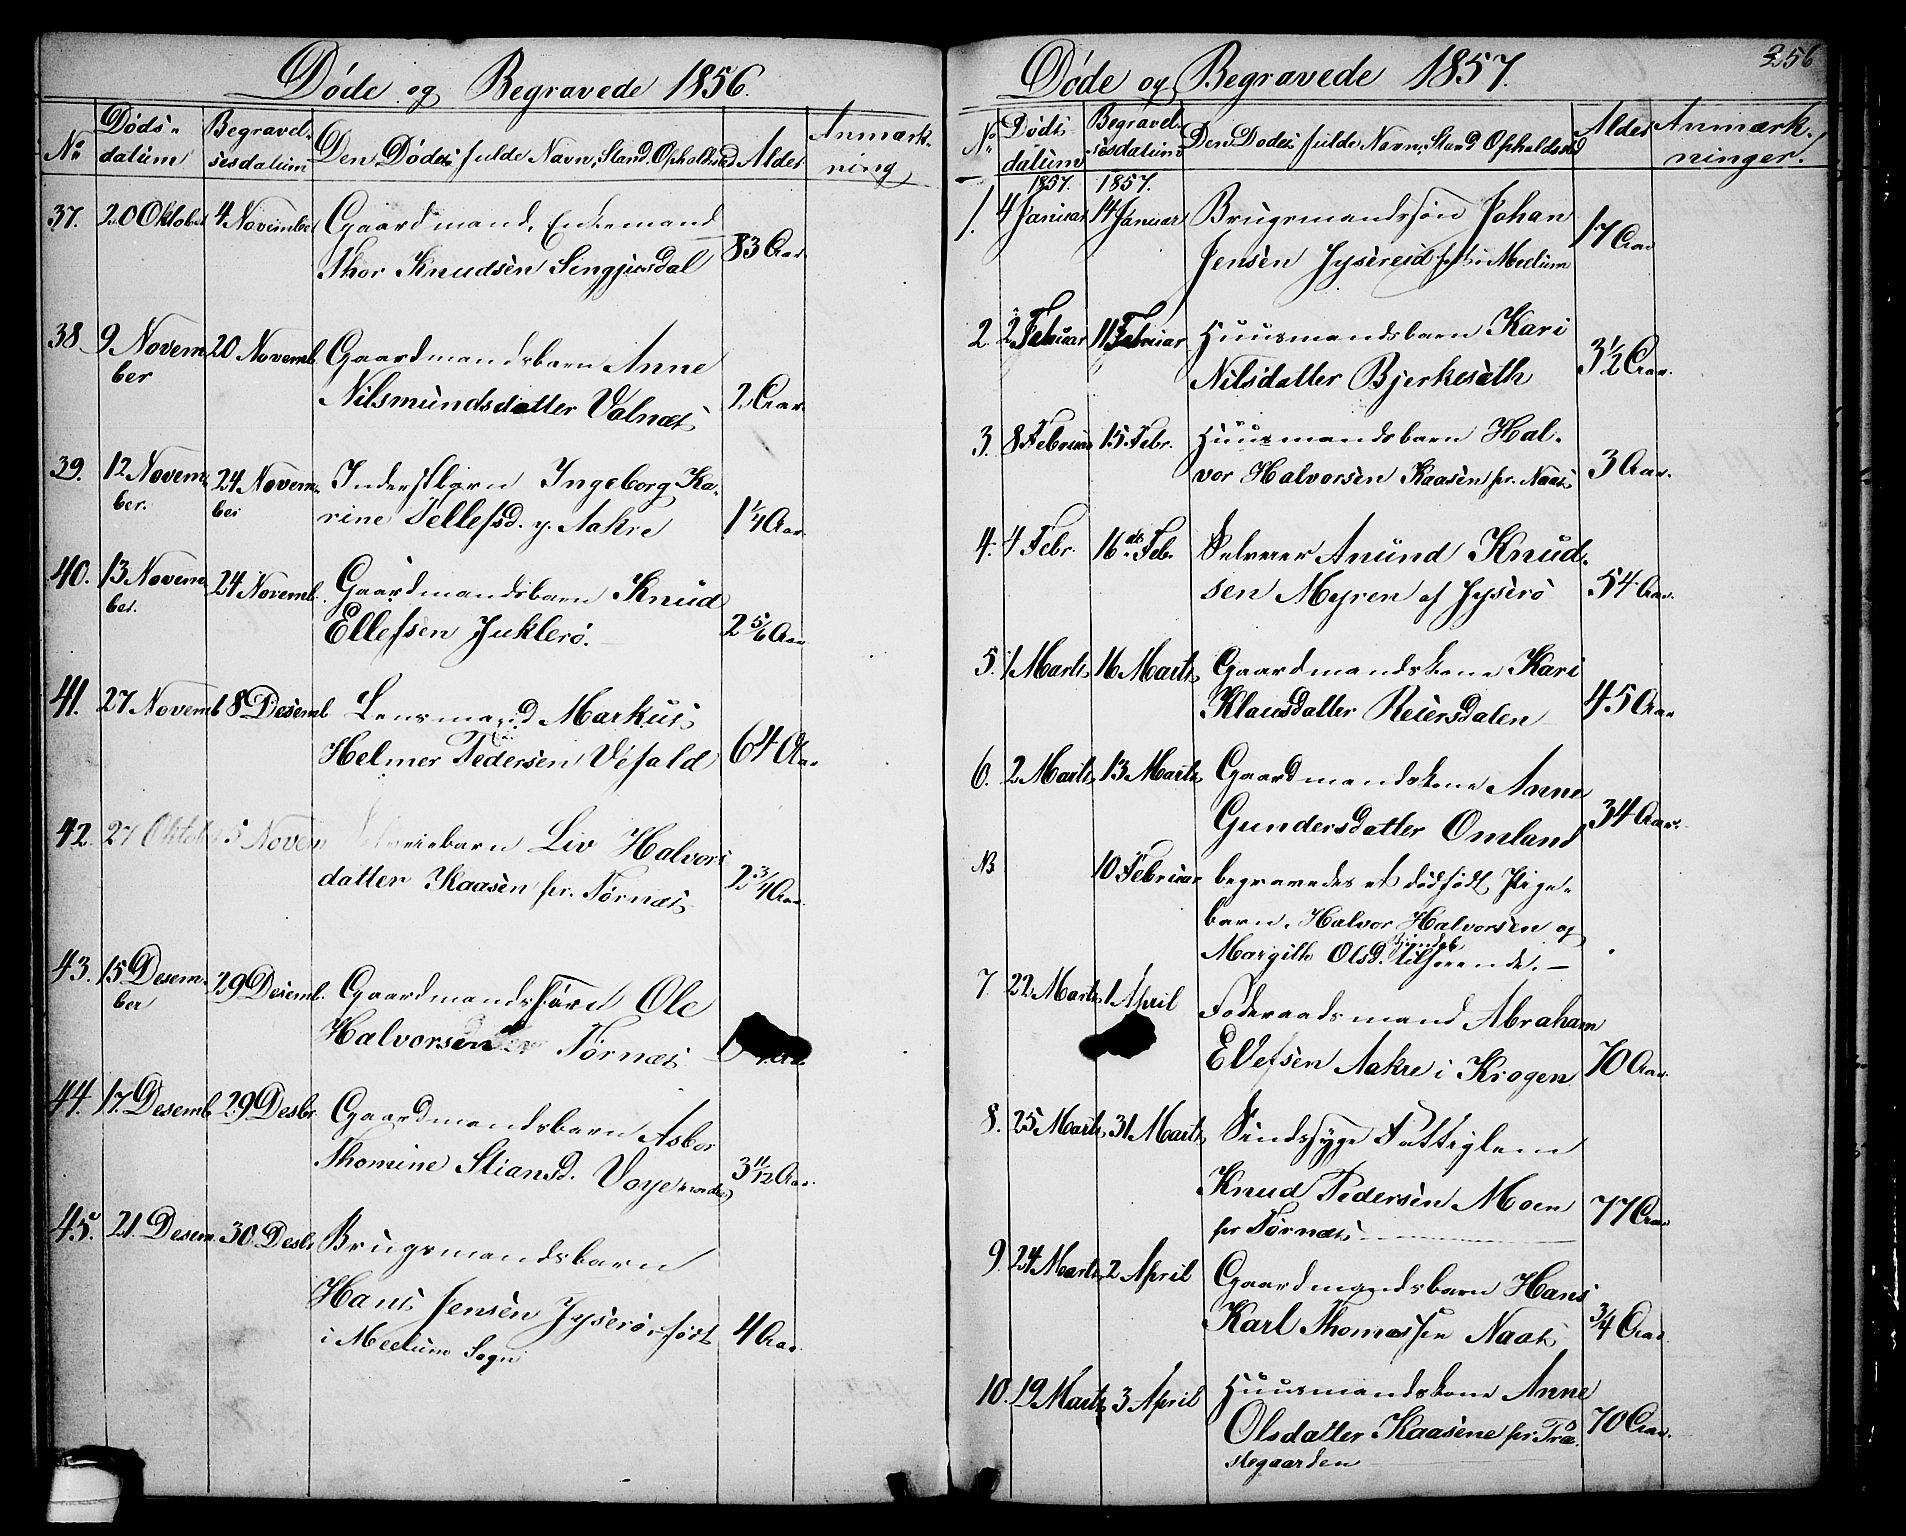 Døde og Begravede 1856.
No Døds- datum Begravel- sesdatum Den Dødes fulde Navn, Stand, Opholdssted Alder Anmærk- ning
37. 20 Oktober 4 November Gaardmand, Enkemand
Thor Knudsen Singjusdal 83 Aar.
38 9 Novem- ber 20 Novemb. Gaardmandsbarn Anne
Nilsmundsdatter Valnæs 2 Aar.
39. 12 Novem- ber. 24 Novem- ber Inderstbarn Ingeborg Ka-
rine Tellefsd. p. Aakre 1 1/4 Aar.
40. 13 Novem- ber. 24 Novemb. Gaardmandsbarn Knud
Ellefsen Juklerö. 2 5/6 Aar
41. 27 Novemb 8 Desemb Lensmand Markus
Helmer Pedersen Vefald 64 Aar
42. 27 Oktob 5 Novem barn Liv Halvors
datter Kaasen pr. Tørnæs 2 3/4 Aar.
43. 15 Desem- ber 29 Desemb. Gaardmands Ole
Halvorsen Tørnæs
44. 17. Desemb 29 Desbr. Gaardmandsbarn Asbor
Thomine Stiansd. Voje 3 11/12 Aar.
45. 21. Desem. 30. Desbr Brugsmandsbarn
Hans Jensen Jyserö, født
i Melum Sogn 4 Aar
256
Døde og Begravede 1857.
No Døds datum Begravel- sesdatum Den Dødes fulde Navn, Stand Opholdssted Alder Anmærk- ninger.
1857. 1857.
1. 4 Januar 14 Januar Brugsmandssøn Johan
Jensen f. i Melum 17 Aar
2. 2 Februar 11 Februar Huusmandsbarn Kari
Nilsdatter Bjerkesæth 3 1/2 Aar.
3. 8 Februar 15 Febr. Huusmandsbarn Hal-
vor Halvorsen Kaasen pr. Naas 3 Aar.
4. 4 Febr. 16de Feb. Selveier Anund Knud-
sen Myren af Jyserö 54 Aar.
5. 1 Marts 16 Marts Gaardmandskone Kari
Klausdatter Reiersdalen 45 Aar
6. 2 Marts 13 Marts Gaardmandskone Anne
Gundersdatter Omland 34 Aar.
NB 10 Februar begravedes et dødfødt Pige-
barn, Halvor Halvorsen og
Margith Olsd. tilhørende. —
7. 22 Marts 1 April Føderaadsmand Abraham
Ellefsen Aakre i Krogen 70 Aar.
8. 25 Marts 31 Marts Sindssyge Fattiglem
Knud Pedersen Moen 77 Aar
pr Tørnæs
9. 24 Marts 2 April Gaardmandsbarn Hans
Karl Thomassen Naas 3/4 Aar.
10. 19 Marts 3 April Huusmandskone Anne
Olsdatter Kaasene pr. Præ- 70 Aar.
stegaarden